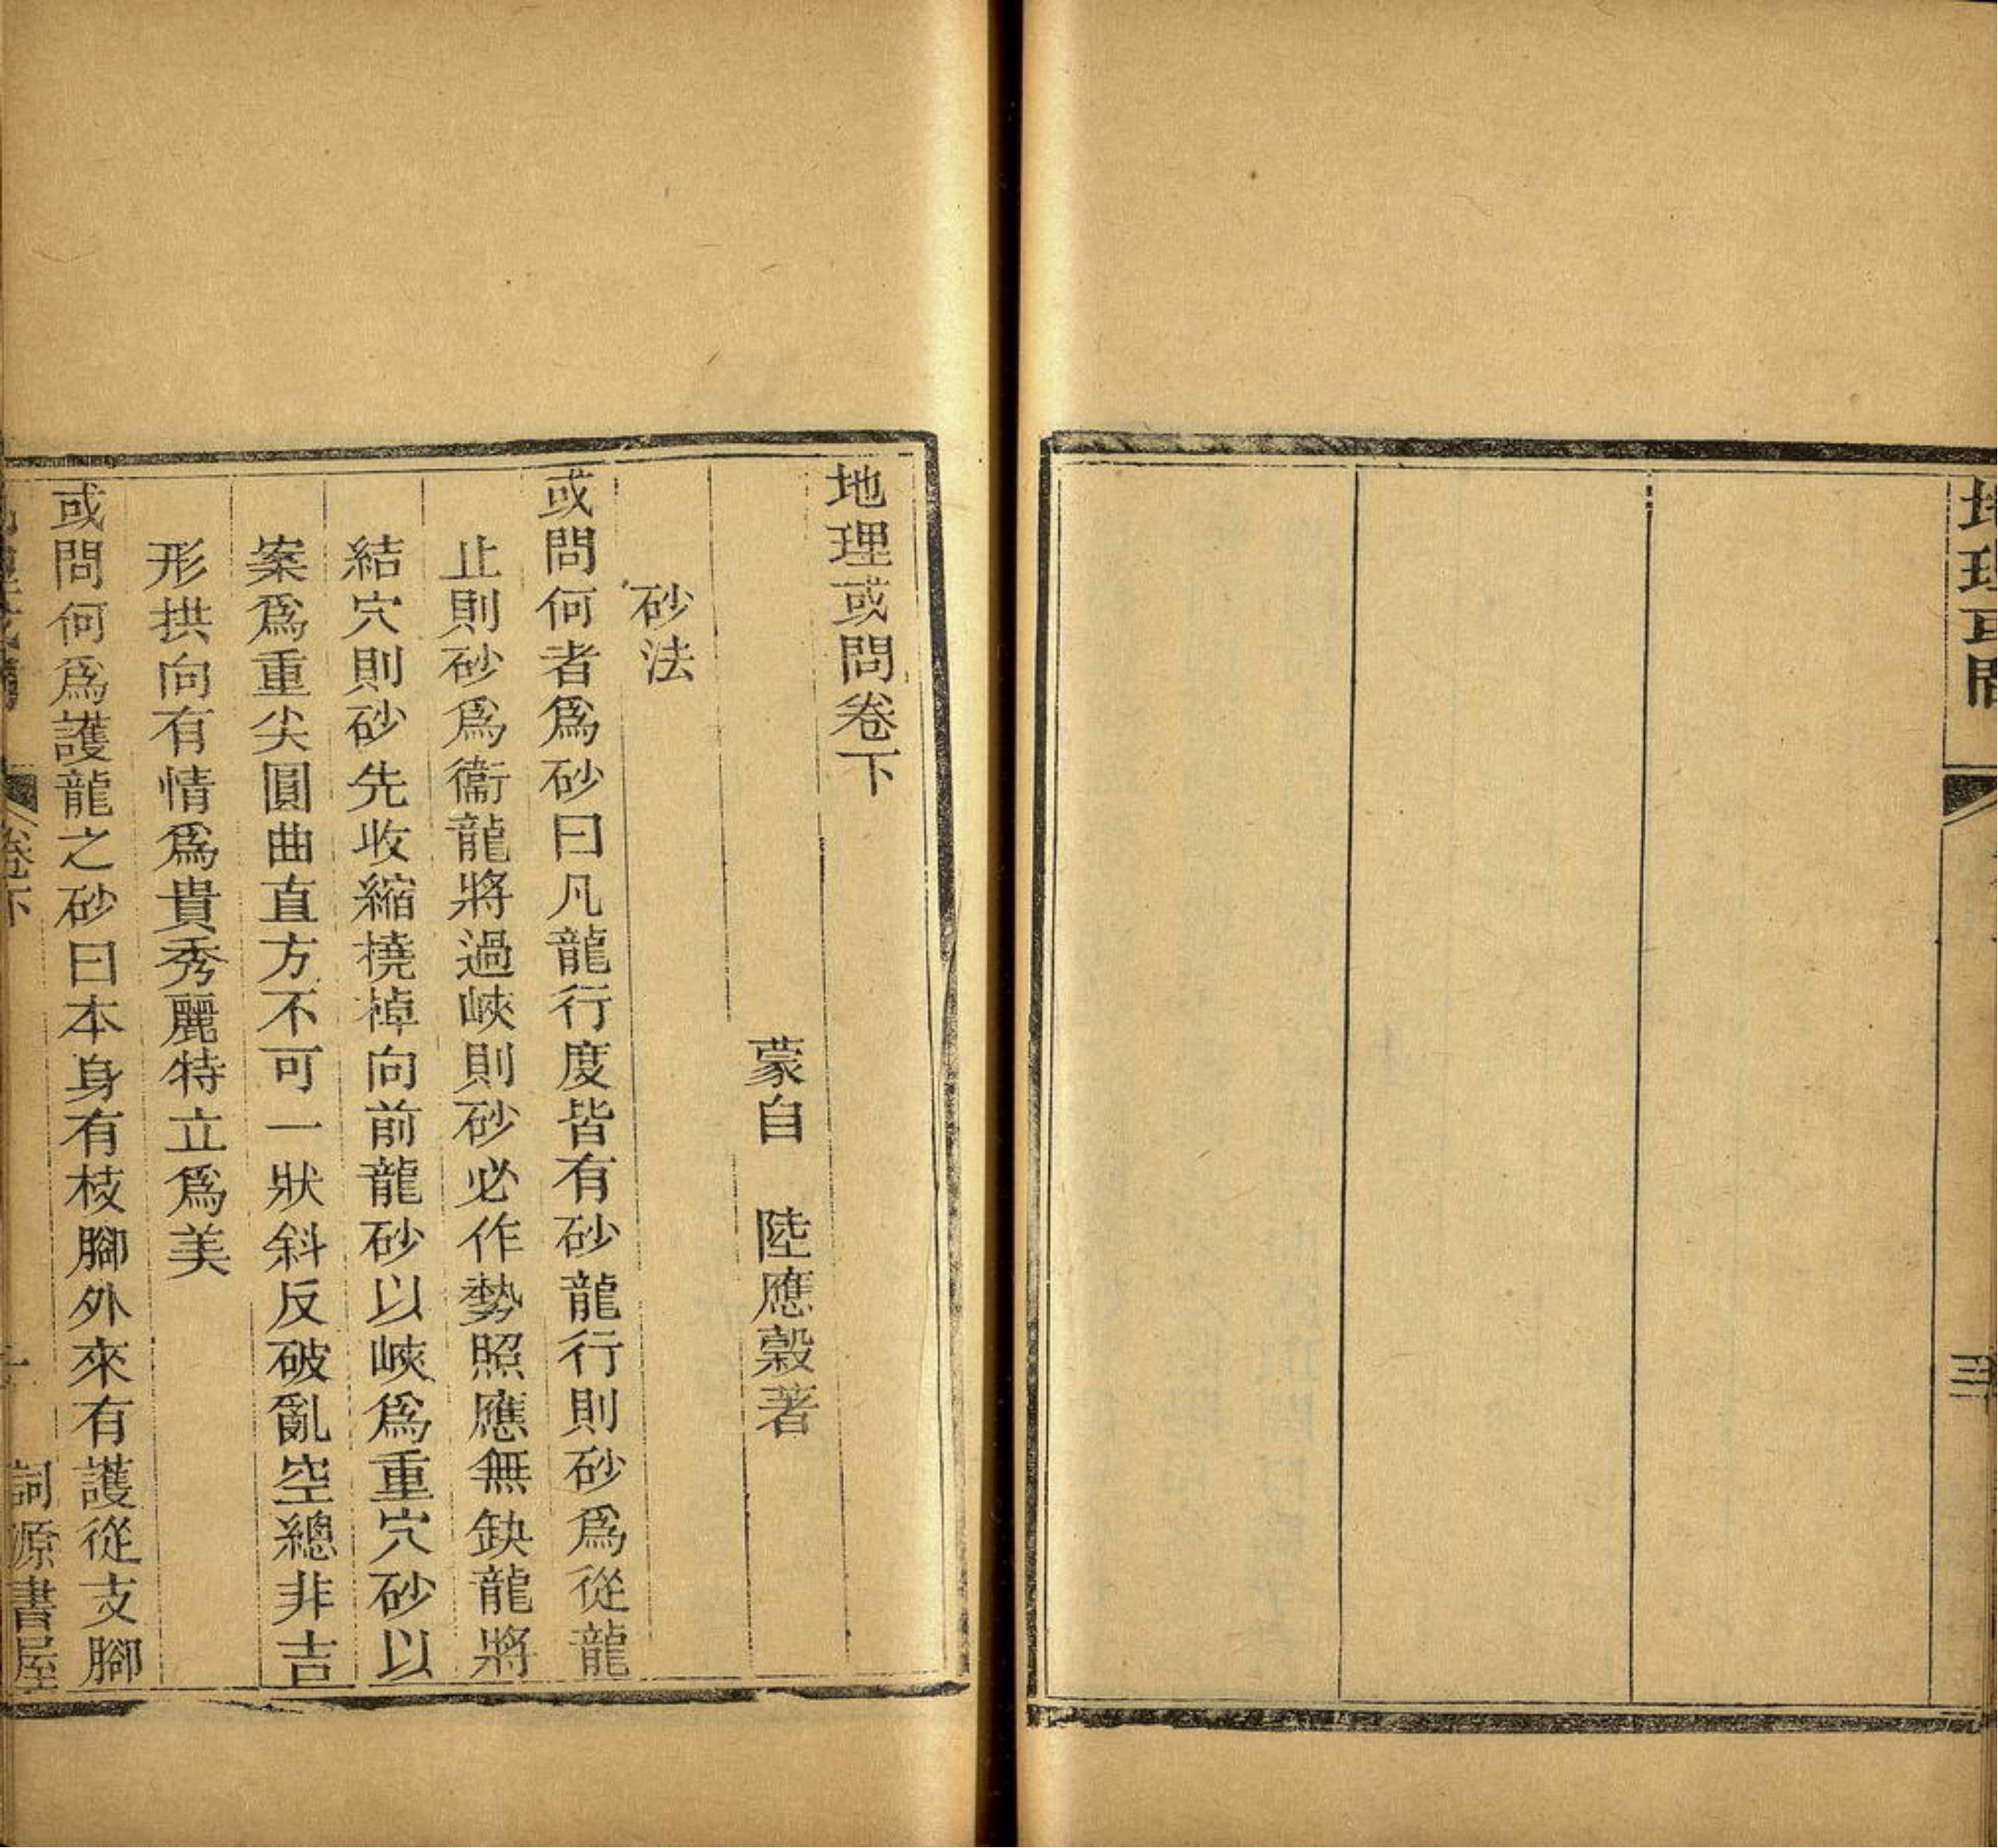 地理或問
地理或問卷下
蒙自　陸應穀著
砂法
或問何者爲砂曰凡龍行度皆有砂龍行則砂爲從龍
止則砂爲衞龍將過峽則砂必作勢照應無缺龍將
結穴則砂先收縮橈棹向前龍砂以峽爲重穴砂以
案爲重尖圓曲直方不可一狀斜反破亂空總非吉
形拱向有情爲貴秀麗特立爲美
或問何爲護龍之砂曰本身有枝腳外來有護從支腳
卷下
一
詞源書屋